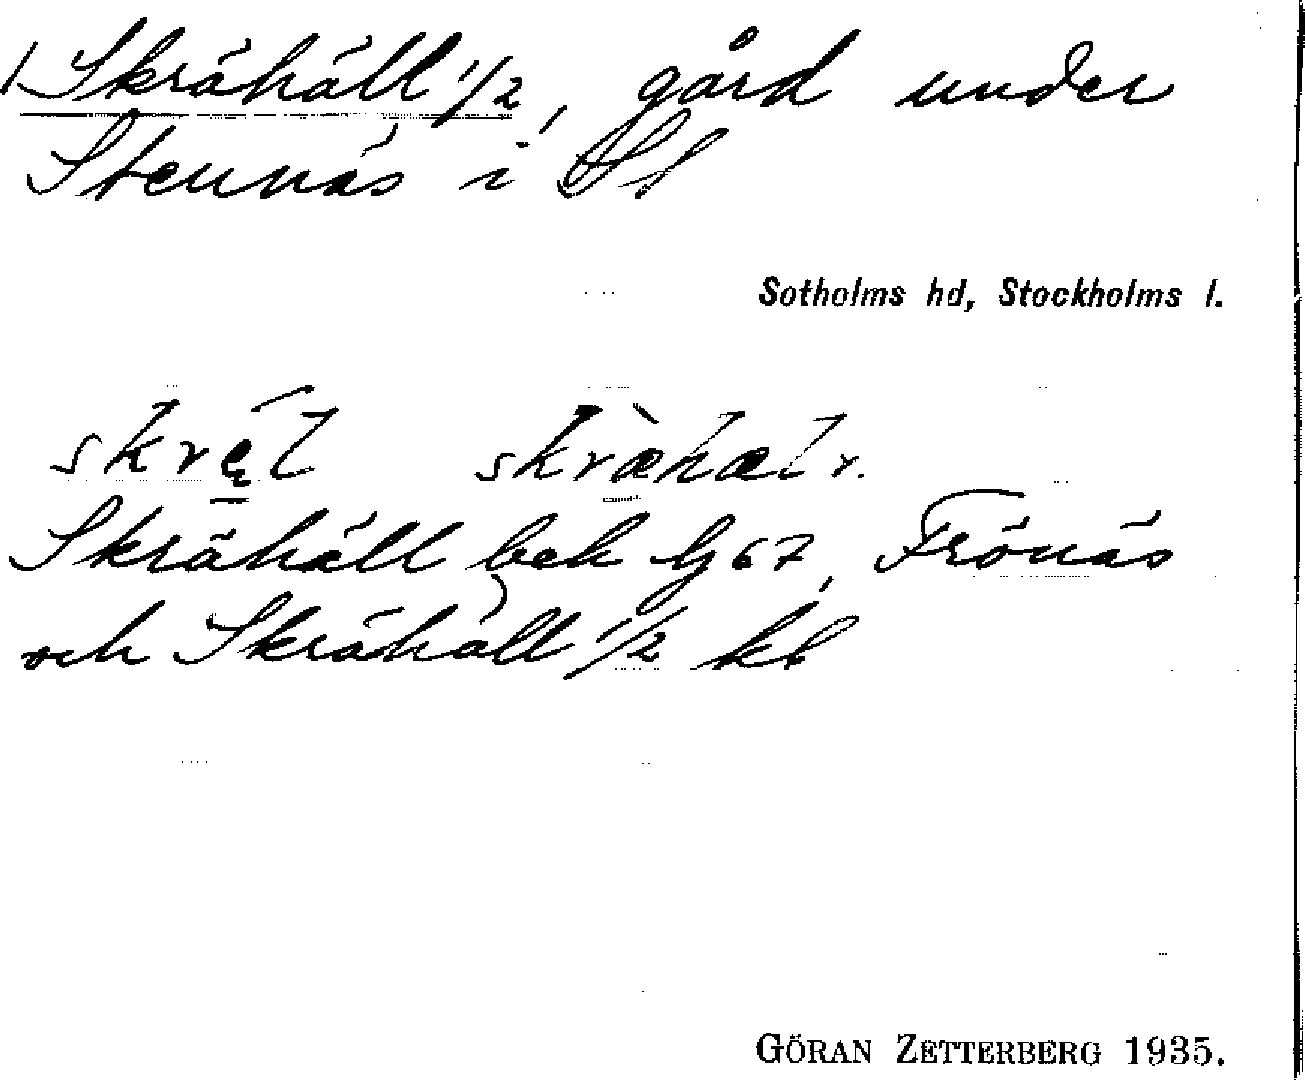 Skrähäll 1/2, gård under
Stennäs i
Sotholms hd, Stockholms l.
skræhæl r.
Skrähäll bek Gj 67, Frönäs
och Skråhäll 1/2 kb
GÖRAN ZETTERBERG 1935.